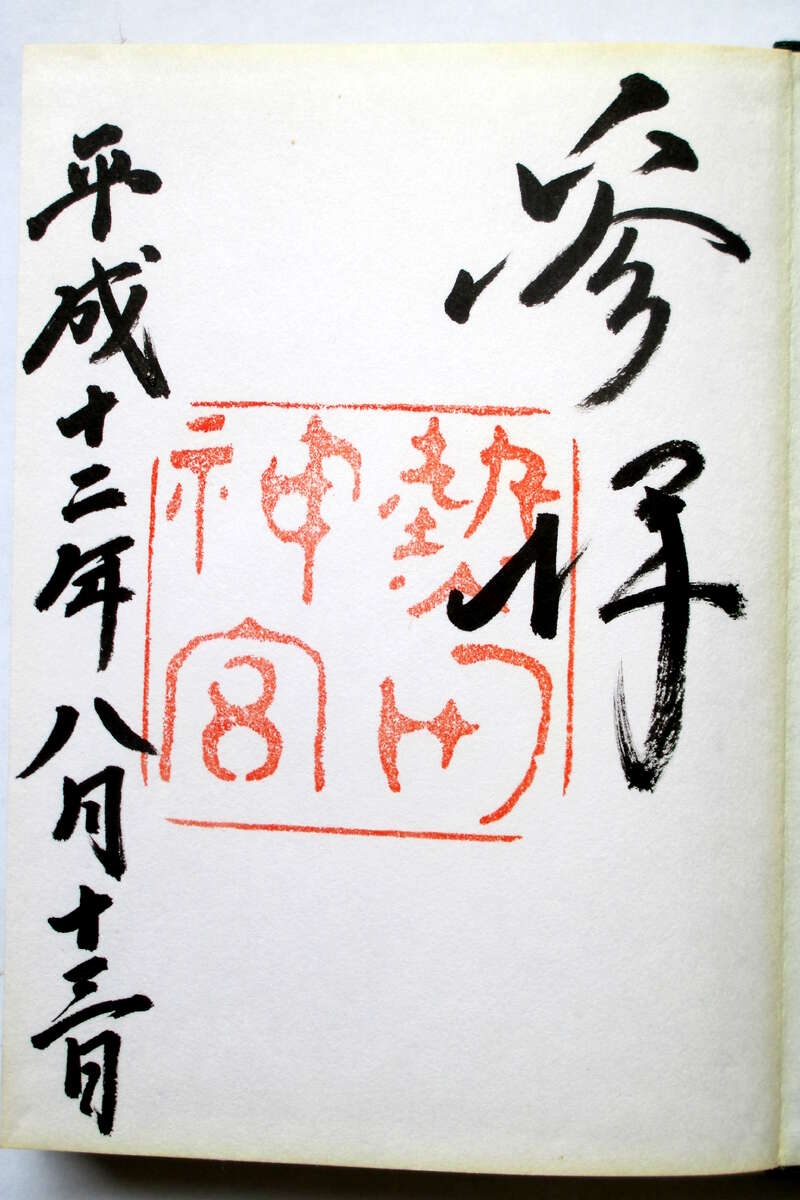 参拝
熱田
神宮
平成十二年八月十三日